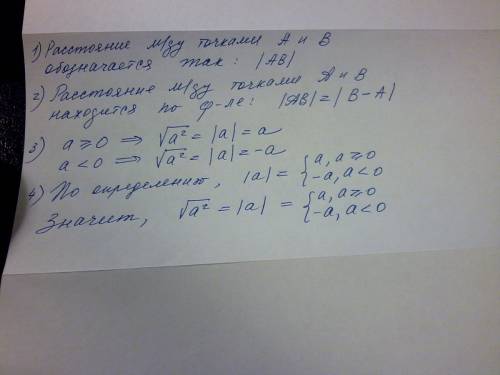 1) Расстояние м/зу точками А и В
обозначается так: |AB|
2) Расстояние м/зу точками А и В
находится по ф-ле: |AB| = |B-A|
3) a ⩾ 0 ⟹ √a² = |a| = a
a < 0 ⟹ √a² = |a| = -a
4) По определит, |a| = { a, a ⩾ 0
-a, a < 0
Значит, √a² = |a| = { a, a ⩾ 0
-a, a < 0